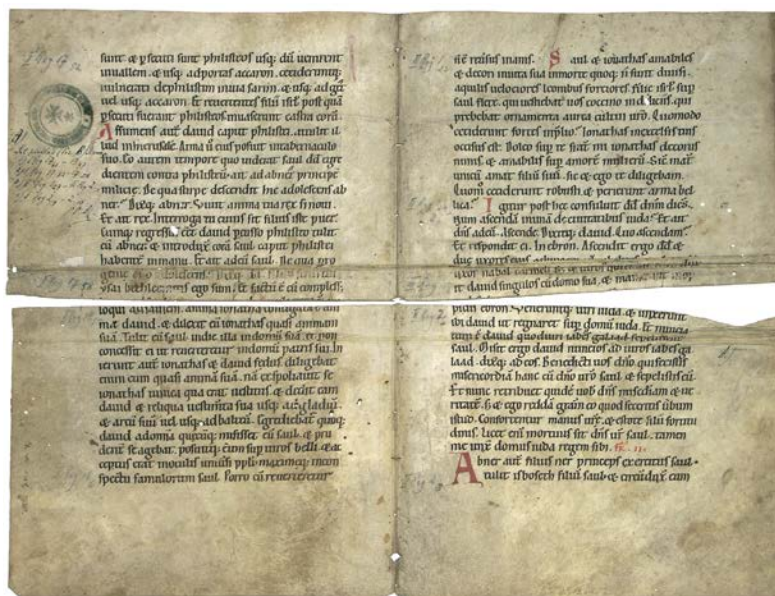 sunt & ꝑsecuti sunt philisteos usq; dū uenirent
inuallem. & usq; adportas accaron. cecideruntq;
uulnerati dephilistim inuia sarim. & usq; ad
uel usq; accaron. Et reuertentes filii isrl post quā
ꝑsecuti fuerant philisteos inuaserunt castra eorū.
Assumens autē dauid caput philistei. attulit il
lud inierusalē. Arma ū eius posuit intabernaculo
suo. Eo autem tempore quo uiderat saul dd̄ egre
dientem contra philisteū. ait ad abner principē
milicie. De qua stirpe descendit hic adolescens ab
ner. Dixitq; abner. Viuit anima tua rex si noui.
Et ait rex. Interroga tu cuius sit filius iste puer.
cunq; regressus eet dauid ꝑcusso philisteo tulit
eū abner. & introduxit corā saul caput philistei
habentē inmanu. Et ait adeū saul. De qua ꝓ
ysai bethleemitis ego sum. Et factū ē cū complesset
loqui
ma dauid. & dilexit eū ionathas quasi animam
suā. Tulit eū saul indie illa indomū suā. & non
concessit ei ut reuerteretur indomū patris sui. In
ierunt autē ionathas & dauid fedus. diligebat
enim eum quasi animā suā. nā expoliauit se
ionathas tunica qua erat uestitus & dedit eam
dauid & reliqua uestimta sua usq; ad gladiū.
& arcū suū uel usq; ad balteū. Egrediebat quoq;
dauid adomnia quecuq; misisset eū saul. & pru
dent se agebat. posuitq; eum sup uiros belli. & ac
ceptus erat inoculis uniūsi ppli. maximeq; incon
spectu famulorum saul. Porro cū reuerteretur
ē reūsus inanis. Saul & ionathas amabiles
& decori inuita sua inmorte quoq; ñ sunt diuisi.
aquilis uelociores leonibus fortiores filie isrl sup
saul flete. qui uestiebat uos coccino indeliciis. qui
prebebat ornamenta aurea cultui uro. Quomodo
ceciderunt fortes inplio. Ionathas inexcelsis tuis
occisus est. Doleo sup te frat mi ionatha decorus
nimis. & amabilis sup amorē mulierū. Sic mat
unicū amat filiū suū. sic & ego te diligebam.
Quom ceciderunt robusti. & perierunt arma bel
lica. Igitur post hec consuluit dd̄ dnm dicēs.
Num ascendā inunā de ciuitatibus iuda. Et ait
dns adeū. Ascende. Dixitq; dauid. Quo ascendam.
Et respondit ei. In ebron. Ascendit ergo dd̄ &
due uxores eius
uxor nabal carmeli. & & uiros qui erant
it dauid singulos cū domo sua. &
pidis ebron. Veneruntq; uiri iuda. & unxerunt
ibi dauid ut regnaret sup domū iuda. Et nuncia
tum ē dauid quod uiri iabes galaad sepelissent
saul. Misit ergo dauid nuncios ad uiros iabes ga
laad. dixitq; ad eos. Benedicti uos dno. qui fecistis
misericordiā hanc cū dno uro saul. & sepelistis eū
Et nunc retribuet quidē uob dns misediam & ue
ritatē. & ego reddā gratiā eo quod fecertis ūbum
istud. Confortentur manus ure. & estote filii fortitu
dinis. licet eni mortuus sit dns ur saul. tamen
me unxit domus iuda regem sibi.
Abner autē filius ner princeps exercitus saul.
tulit isboseth filiū saul. & circūdux eum